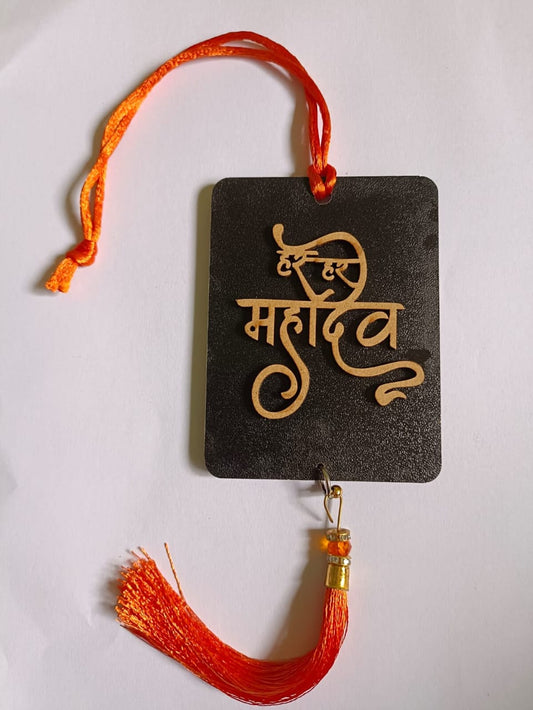 हर हर
महादेव